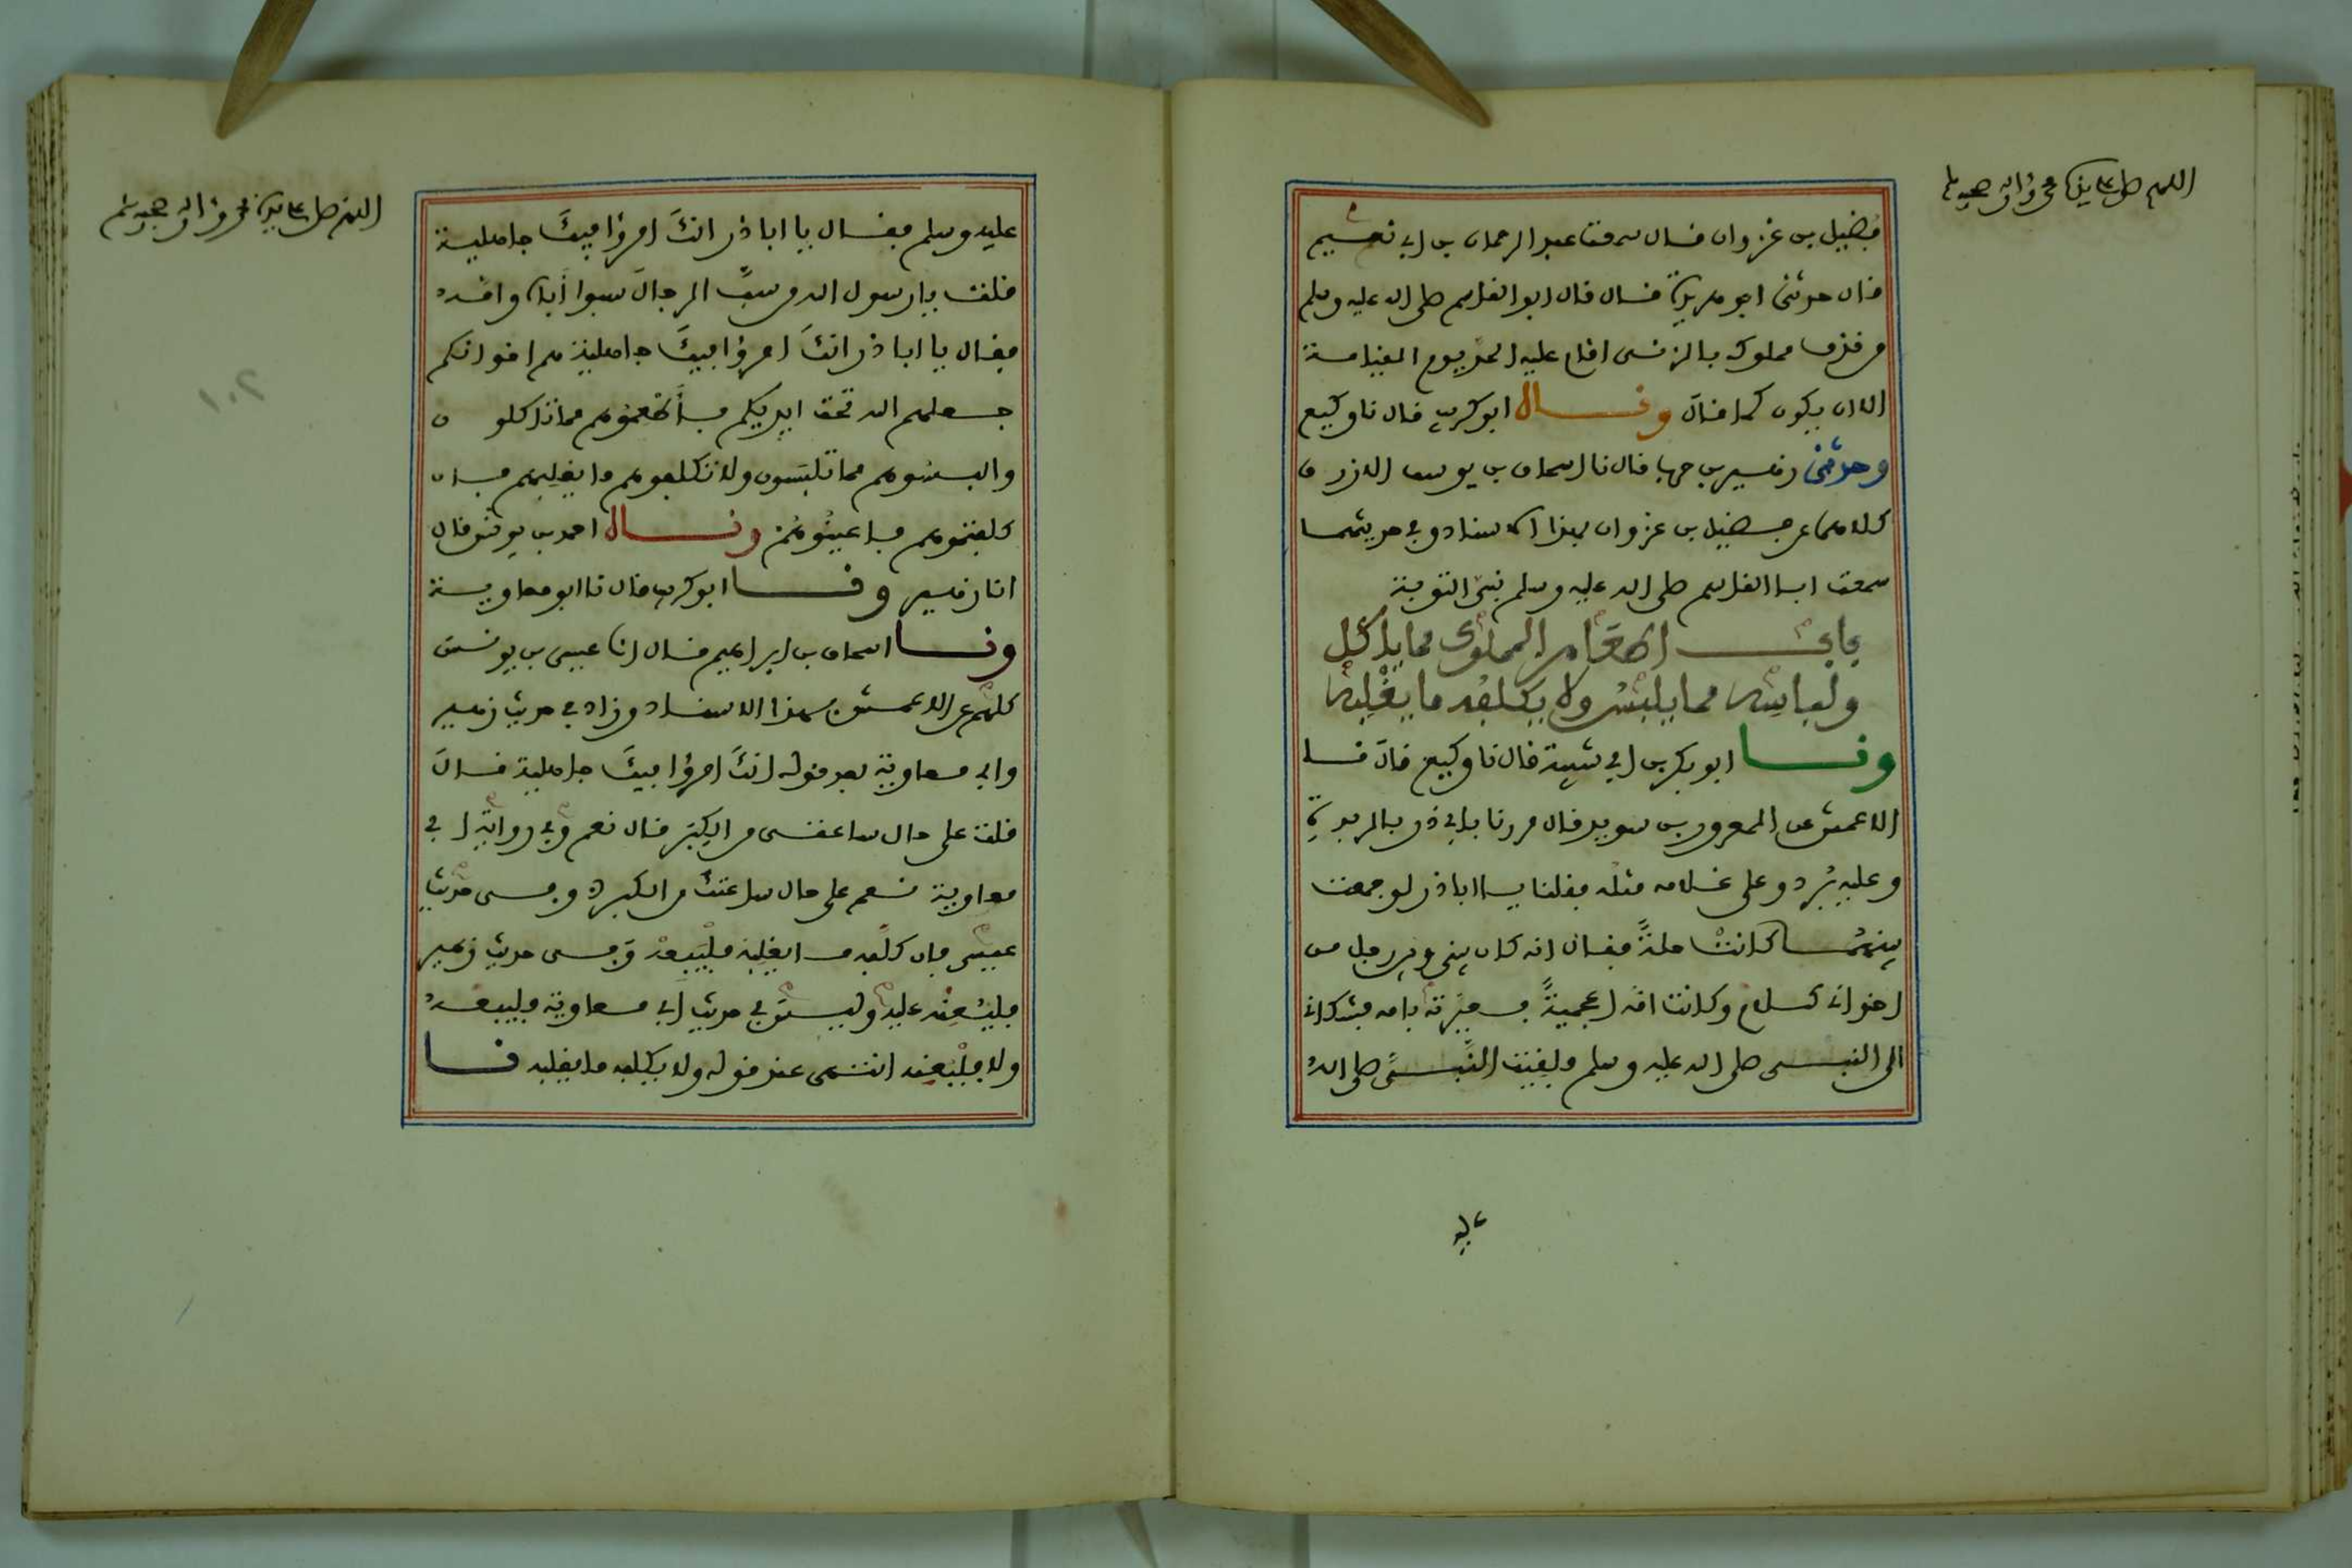 اللهم صل على سيدنا محمد وءاله وصحبه وسلم
فضيل بن غزوان قال سمعت عبد الرحمان بن ابي نعم
قال حدثني ابو هريرة قال قال ابو القاسم صلى الله عليه وسلم
من قذف مملوكه بالزنى اقام عليه الحد يوم القيامة
الا ان يكون كما قال وقال ابو كريب قال نا وكيع
وحدثني زهير بن حرب قال نا اسحاق بن يوسف الازرق
كلاهما عن فضيل بن غزوان بهذا الاسناد وفي حديثهما
سمعت ابا القاسم صلى الله عليه وسلم نبي التوبة
باب اطعام المملوك مما يأكل
ولباسه مما يلبس ولا يكلفه ما يغلبه
ونا ابو بكر بن ابي شيبة قال نا وكيع قال نا
الاعمش عن المعرور بن سويد قال مررنا بابي ذر بالربذة
وعليه برد وعلى غلامه مثله فقلنا يا ابا ذر لو جمعت
بينهما كانت حلة فقال انه كان بيني وبين رجل من
اخواني كلام وكانت امه اعجمية فعيرته بامه فشكاني
الى النبي صلى الله عليه وسلم فلقيت النبي صلى الله
عليه
اللهم صل على سيدنا محمد وءاله وصحبه وسلم
عليه وسلم فقال يا ابا ذر انك امرؤ فيك جاهلية
قلت يا رسول الله من سب الرجال سبوا أباه وامه
فقال يا ابا ذر انك امرؤ فيك جاهلية هم اخوانكم
جعلهم الله تحت ايديكم فأطعموهم مما تاكلون
والبسوهم مما تلبسون ولا تكلفوهم ما يغلبهم فان
كلفتموهم فاعينوهم وقال احمد بن يونس قال
انا زهير ونا ابو كريب قال نا ابو معاوية
ونا اسحاق بن ابراهيم قال انا عيسى بن يونس
كلهم عن الاعمش بهذا الاسناد وزاد في حديث زهير
وابي معاوية بعد قوله انك امرؤ فيك جاهلية قال
قلت على حال ساعتي من الكبر قال نعم وفي رواية ابي
معاوية نعم على حال ساعتك من الكبر وفي حديث
عيسى فان كلفه ما يغلبه فليبعه وفي حديث زهير
فليعنه عليه وليس في حديث ابي معاوية فليبعه
ولا فليعنه انتهى عند قوله ولا يكلفه ما يغلبه نا
١٠٢